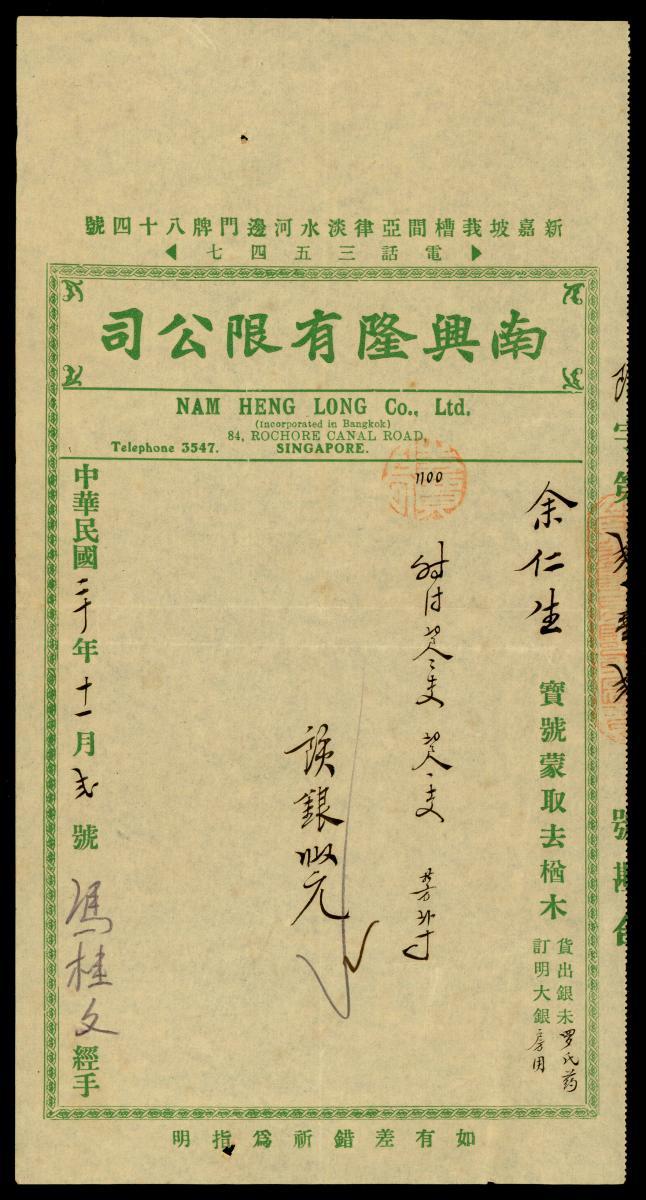 新嘉坡莪槽間亞律淡水河邊門牌八十四號
電話三五四七
南興隆有限公司
NAM HENG LONG Co., Ltd.
(Incorporated in Bangkok)
84, ROCHORE CANAL ROAD,
Telephone 3547. SINGAPORE.
余仁生 寶號蒙取去楢木
貨出銀未
訂明大銀
罗氏药
房用
1100
該銀
元
中華民國二十年十一月弍號 馮桂文 經手
字第
號
如有差錯祈為指明